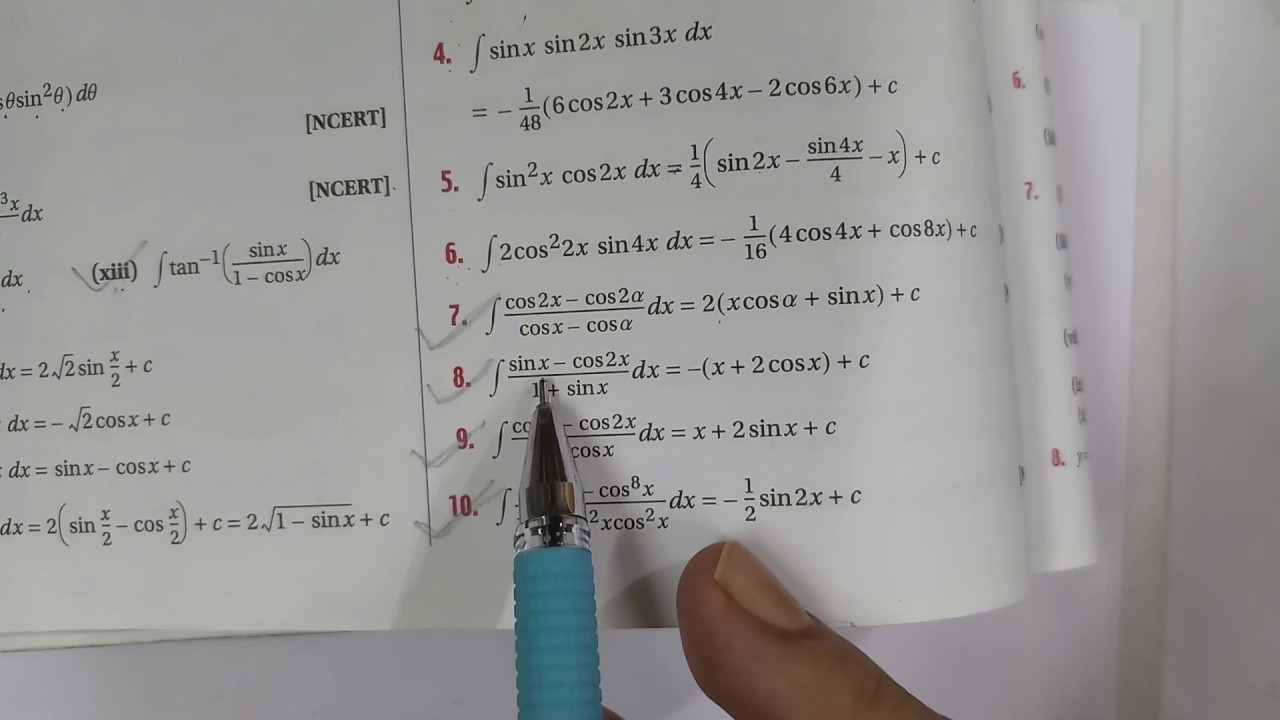 θsin²θ) dθ
[NCERT]
³x/ dx
[NCERT]
dx
(xiii) ∫ tan⁻¹(sin x/(1 − cos x)) dx
dx = 2√2 sin x/2 + c
dx = − √2 cos x + c
dx = sin x − cos x + c
dx = 2(sin x/2 − cos x/2) + c = 2√(1 − sin x) + c
4. ∫ sin x sin 2x sin 3x dx
= − 1/48 (6 cos 2x + 3 cos 4x − 2 cos 6x) + c
5. ∫ sin²x cos 2x dx = 1/4 (sin 2x − sin 4x/4 − x) + c
6. ∫ 2cos²2x sin 4x dx = − 1/16 (4 cos 4x + cos 8x) + c
7. ∫ (cos 2x − cos 2α)/(cos x − cos α) dx = 2(x cos α + sin x) + c
8. ∫ (sin x − cos 2x)/(1 + sin x) dx = −(x + 2 cos x) + c
9. ∫ − cos 2x/cos x dx = x + 2 sin x + c
10. ∫ − cos⁸x/²x cos²x dx = − 1/2 sin 2x + c
6.
7.
8. y=